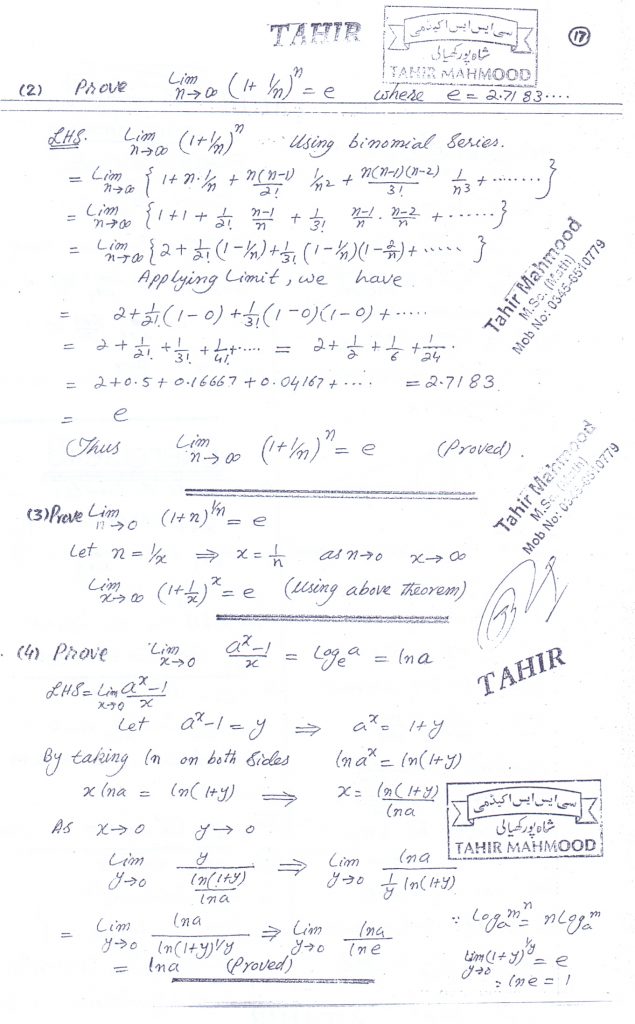 TAHIR
سی ایس ایس اکیڈمی
شاہ پور کھیالی
TAHIR MAHMOOD
(17)
(2) Prove Lim n→∞ (1+ 1/n)^n = e where e = 2.7183....
LHS. Lim n→∞ (1+1/n)^n Using binomial Series.
= Lim n→∞ {1+n·1/n + n(n-1)/2! 1/n² + n(n-1)(n-2)/3! 1/n³ + ........}
= Lim n→∞ {1+1+ 1/2! n-1/n + 1/3! n-1/n · n-2/n + ......}
= Lim n→∞ {2+ 1/2! (1-1/n) + 1/3! (1-1/n)(1-2/n) + ..... }
Applying Limit, we have
= 2+ 1/2! (1-0) + 1/3! (1-0)(1-0) + .....
= 2+ 1/2! + 1/3! + 1/4! + .... = 2+ 1/2 + 1/6 + 1/24 .
= 2+0.5+0.16667+0.04167+.... = 2.7183
= e
Thus Lim n→∞ (1+1/n)^n = e (Proved).
Tahir Mahmood
M.Sc. (Math)
Mob No: 0345-6510779
(3) Prove Lim n→0 (1+n)^1/n = e
Let n = 1/x ⇒ x = 1/n as n→0 x→∞
Lim x→∞ (1+1/x)^x = e (Using above theorem)
Tahir Mahmood
M.Sc. (Math)
Mob No: 0345-6510779
TAHIR
(4) Prove Lim x→0 a^x-1/x = Log_e a = lna
LHS = Lim x→0 a^x-1/x
Let a^x-1 = y ⇒ a^x = 1+y
By taking ln on both Sides ln a^x = ln(1+y)
x lna = ln(1+y) ⇒ x = ln(1+y)/lna
As x→0 y→0
سی ایس ایس اکیڈمی
شاہ پور کھیالی
TAHIR MAHMOOD
Lim y→0 y/(ln(1+y)/lna) ⇒ Lim y→0 lna/(1/y ln(1+y))
= Lim y→0 lna/ln(1+y)^1/y ⇒ Lim y→0 lna/lne ∵ Log_a m^n = n Log_a m
= lna (Proved)
Lim y→0 (1+y)^1/y = e
: lne = 1